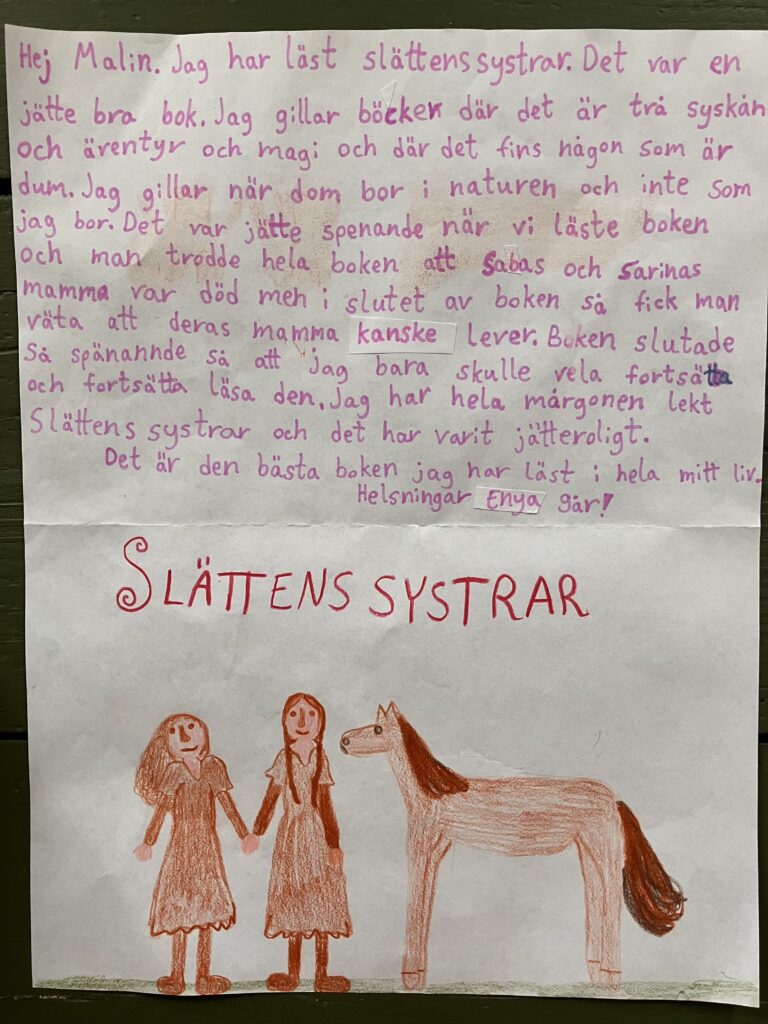 Hej Malin. Jag har läst slättens systrar. Det var en
jätte bra bok. Jag gillar böcker där det är två syskån
och äventyr och magi och där det fins någon som är
dum. Jag gillar när dom bor i naturen och inte som
jag bor. Det var jätte spenande när vi läste boken
och man trodde hela boken att Sabas och Sarinas
mamma var död men i slutet av boken så fick man
väta att deras mamma kanske lever. Boken slutade
Så spänannde så att jag bara skulle vela fortsätta
och fortsätta läsa den. Jag har hela mårgonen lekt
Slättens systrar och det har varit jätteroligt.
Det är den bästa boken jag har läst i hela mitt liv.
Helsningar Enya 9år!
SLÄTTENS SYSTRAR